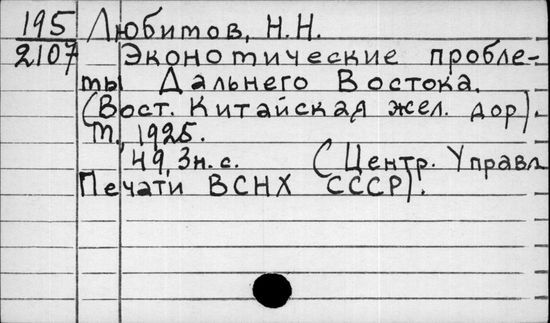 195 Любимов, Н.Н.
2107 Экономические пробле-
мы Дальнего Востока.
(Вост. Китайская жел. дор).
М., 1925.
49, 3 н. с. (Центр. Управл
Печати ВСНХ СССР).